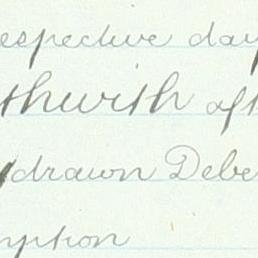 espective day
thwith aft
drawn Debe
mption